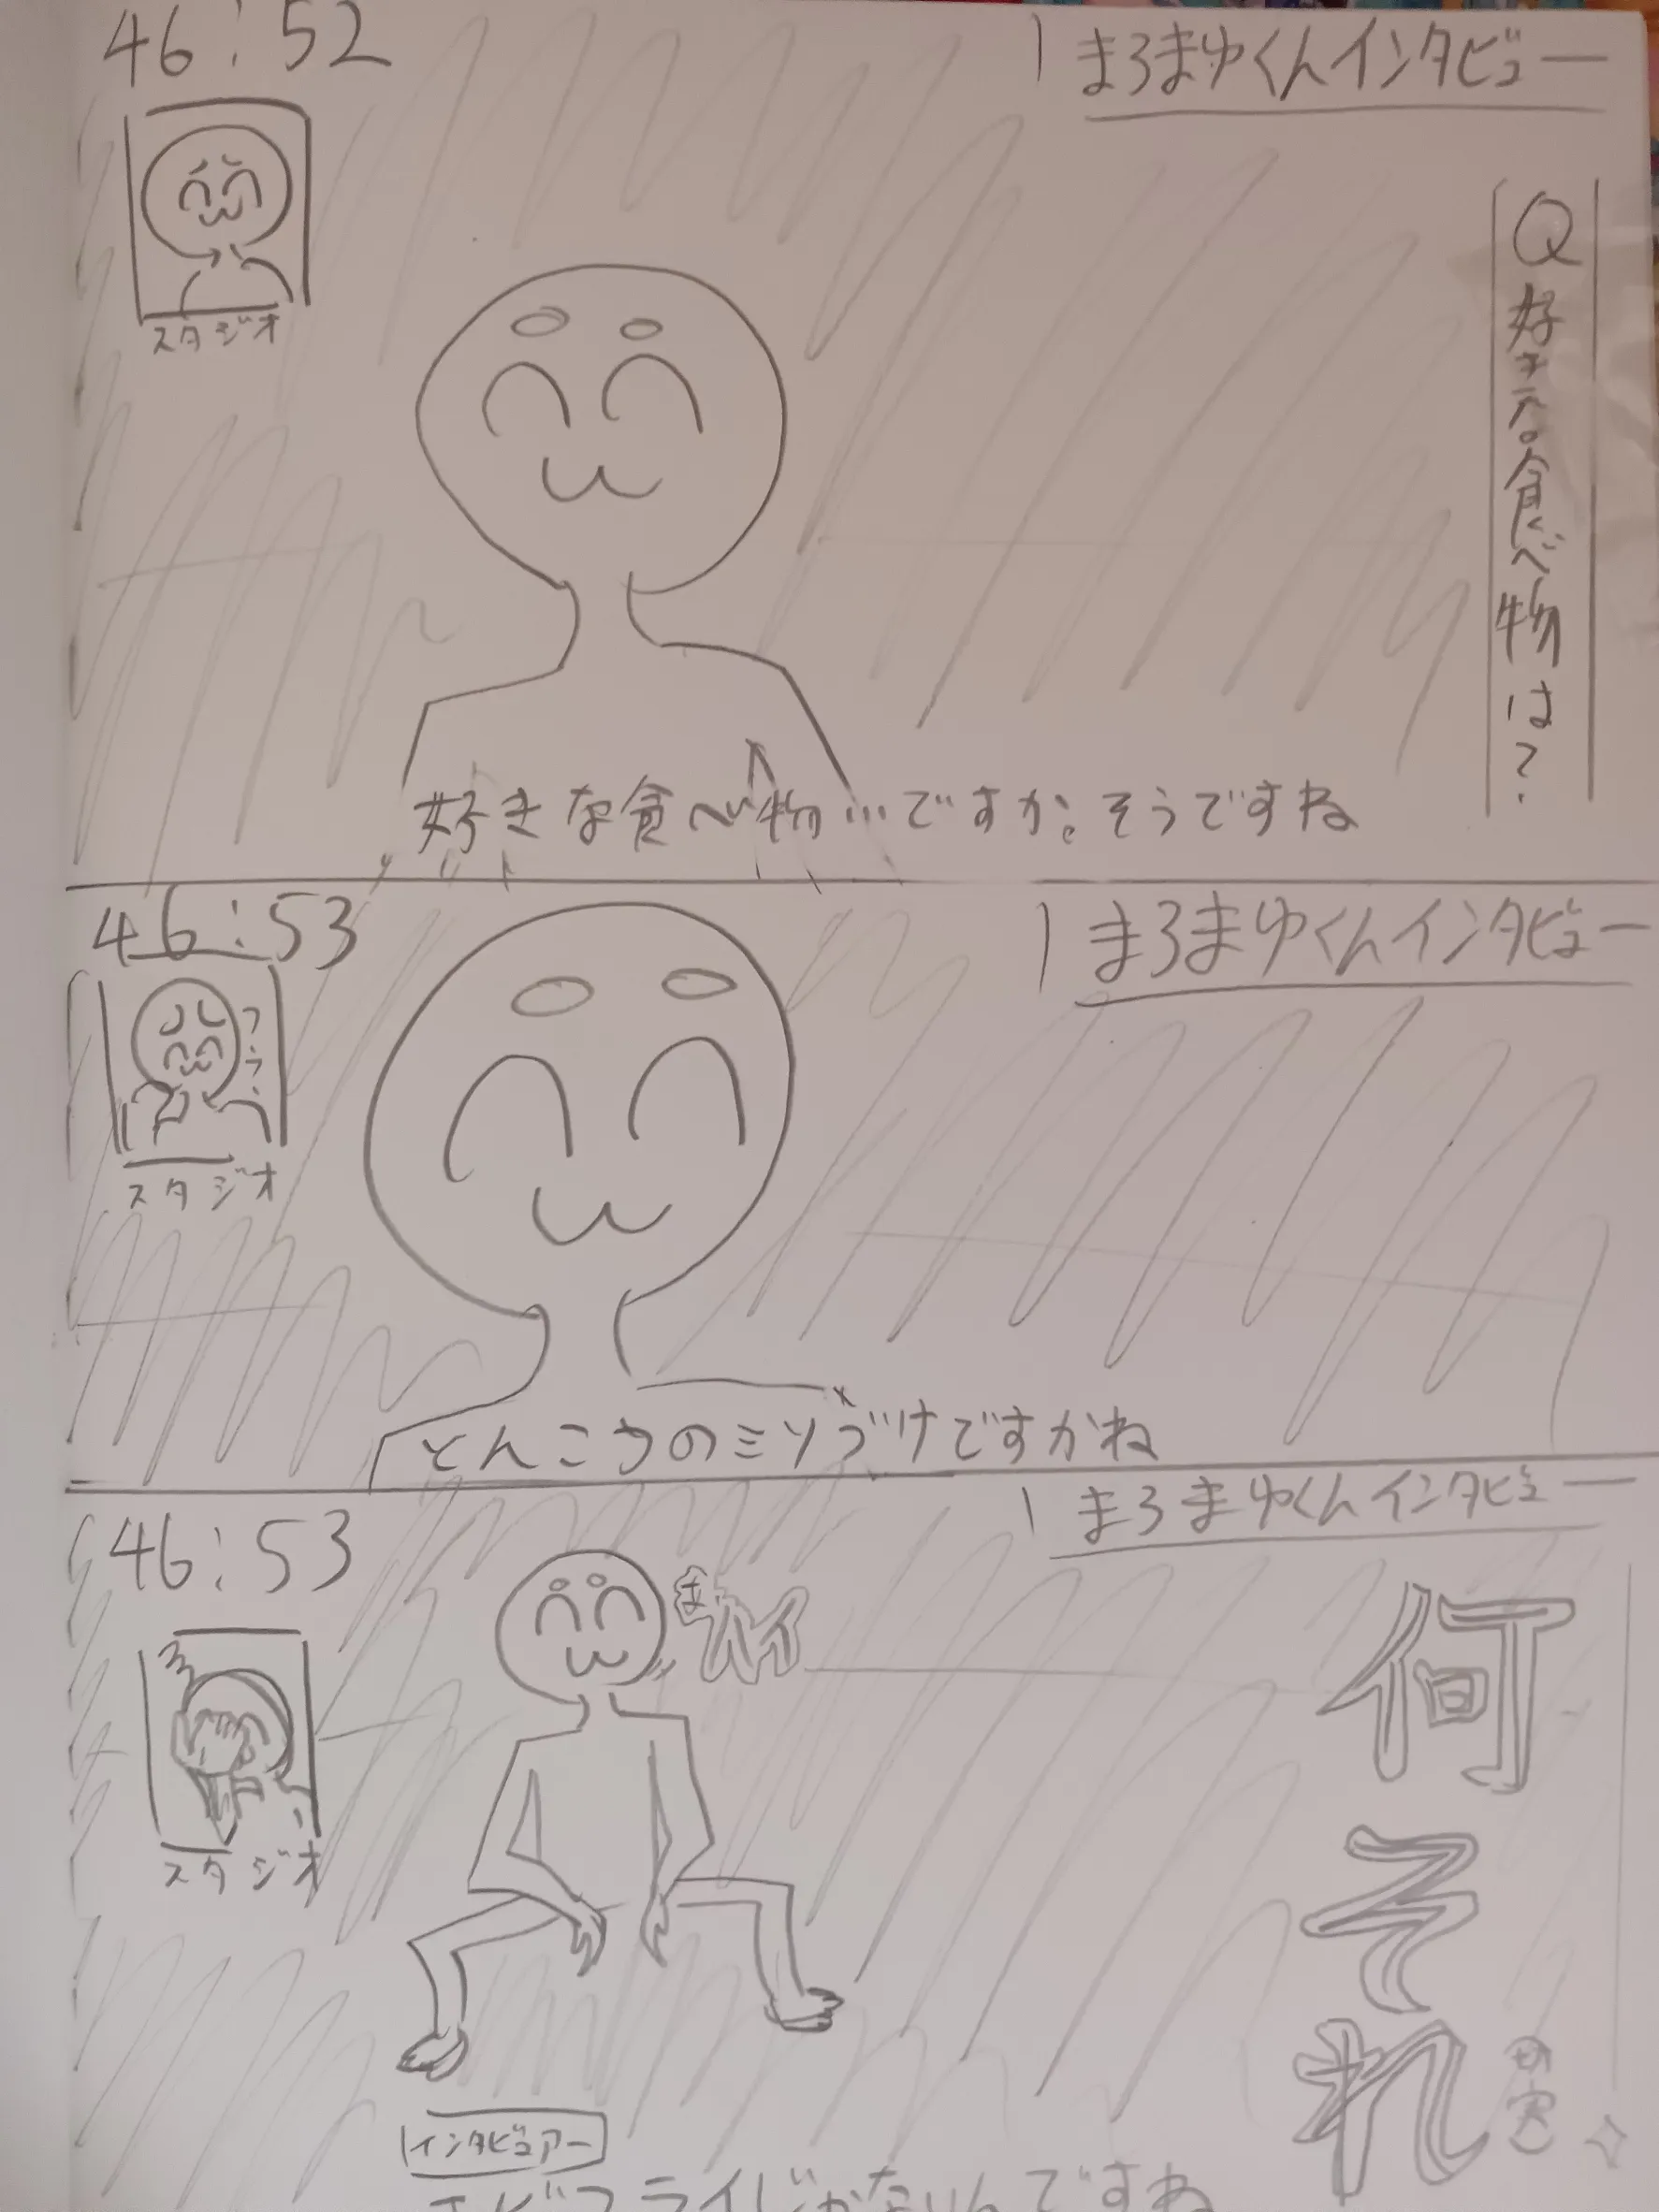 46:52
まろまゆくんインタビュー
スタジオ
Q好きな食べ物は?
好きな食べ物…ですか。そうですね
46:53
まろまゆくんインタビュー
スタジオ
とんこつのミソづけですかね
46:53
まろまゆくんインタビュー
スタジオ
ハイ
何それ
(笑)
インタビュアー
エビフライじゃないんですね